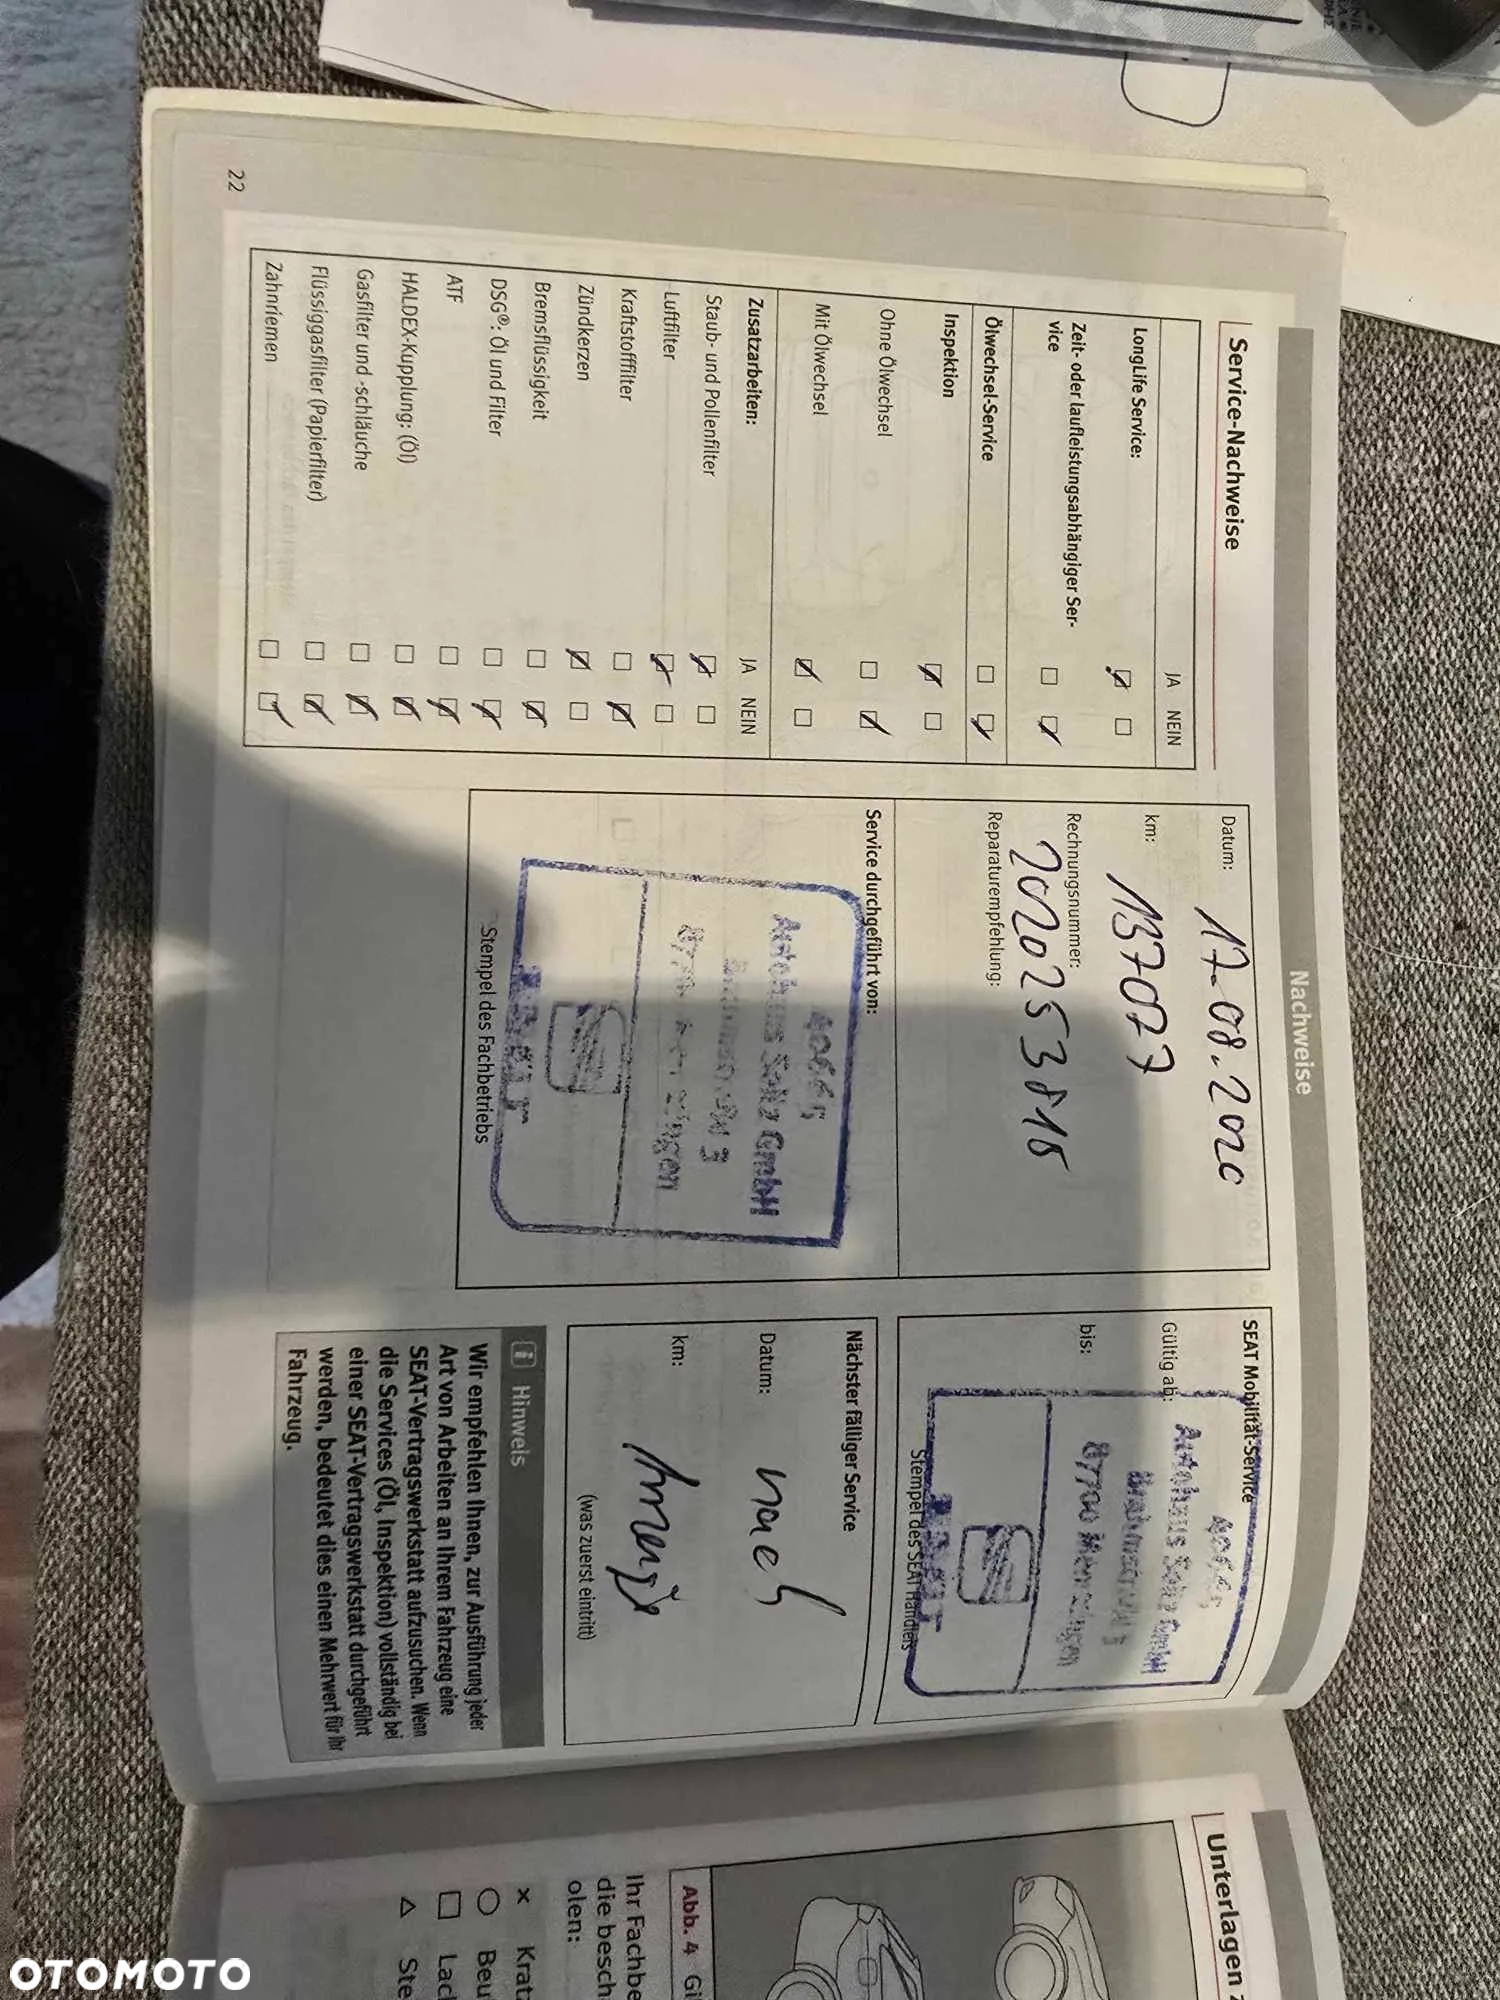 Nachweise
Service-Nachweise
JA NEIN
LongLife Service:
Zeit- oder laufleistungsabhängiger Ser-
vice
Ölwechsel-Service
Inspektion
Ohne Ölwechsel
Mit Ölwechsel
Zusatzarbeiten: JA NEIN
Staub- und Pollenfilter
Luftfilter
Kraftstofffilter
Zündkerzen
Bremsflüssigkeit
DSG®: Öl und Filter
ATF
HALDEX-Kupplung: (Öl)
Gasfilter und -schläuche
Flüssiggasfilter (Papierfilter)
Zahnriemen
22
Datum: 17.08.2020
km: 137077
Rechnungsnummer:
Reparaturempfehlung:
Service durchgeführt von:
Autohaus Seitz GmbH
Stempel des Fachbetriebs
SEAT Mobilität-Service
Gültig ab:
bis:
Autohaus Seitz GmbH
Stempel des SEAT Händlers
Nächster fälliger Service
Datum: nach
km: Anzeige
(was zuerst eintritt)
Hinweis
Wir empfehlen Ihnen, zur Ausführung jeder
Art von Arbeiten an Ihrem Fahrzeug eine
SEAT-Vertragswerkstatt aufzusuchen. Wenn
die Services (Öl, Inspektion) vollständig bei
einer SEAT-Vertragswerkstatt durchgeführt
werden, bedeutet dies einen Mehrwert für Ihr
Fahrzeug.
Unterlagen
Abb. 4
Ihr Fachbe
die besch
olen:
Kratz
Beu
Lac
Ste
OTOMOTO